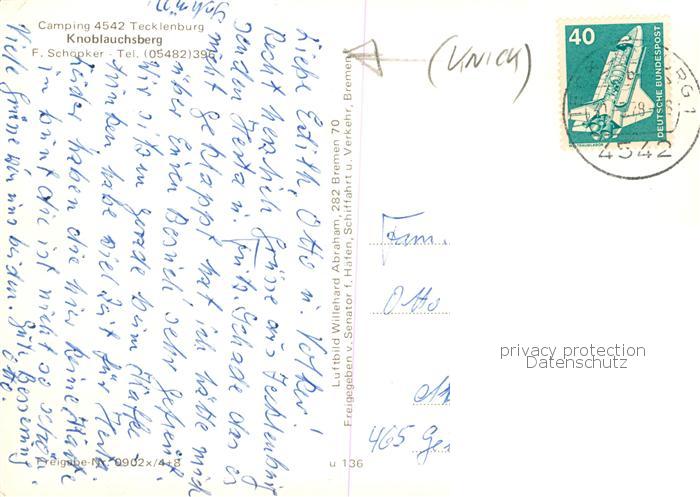 Camping 4542 Tecklenburg
Knoblauchsberg
F. Schöpker - Tel. (05482)396
Liebe Edith, Otto u. Volker!
Recht herzlich Grüsse aus Tecklenburg
senden Herta u. Fritz. Schade das es
nicht geklappt hat ich hätte mich
über Euren Besuch sehr gefreut.
Wir sitzen gerade beim Kaffee
trinken habe viel Zeit für Herta.
Leider haben die hier keine Karte
in bunt die ist nicht so schön.
Viele Grüsse von uns beiden. Gute Besserung
Otto.
Freigabe-Nr. 0902x/4+8
u 136
Luftbild Willehard Abraham, 282 Bremen 70
Freigegeben v. Senator f. Häfen, Schiffahrt u. Verkehr, Bremen
(KNICK)
40
DEUTSCHE BUNDESPOST
4542
Fam.
Otto
465 Ge
privacy protection
Datenschutz